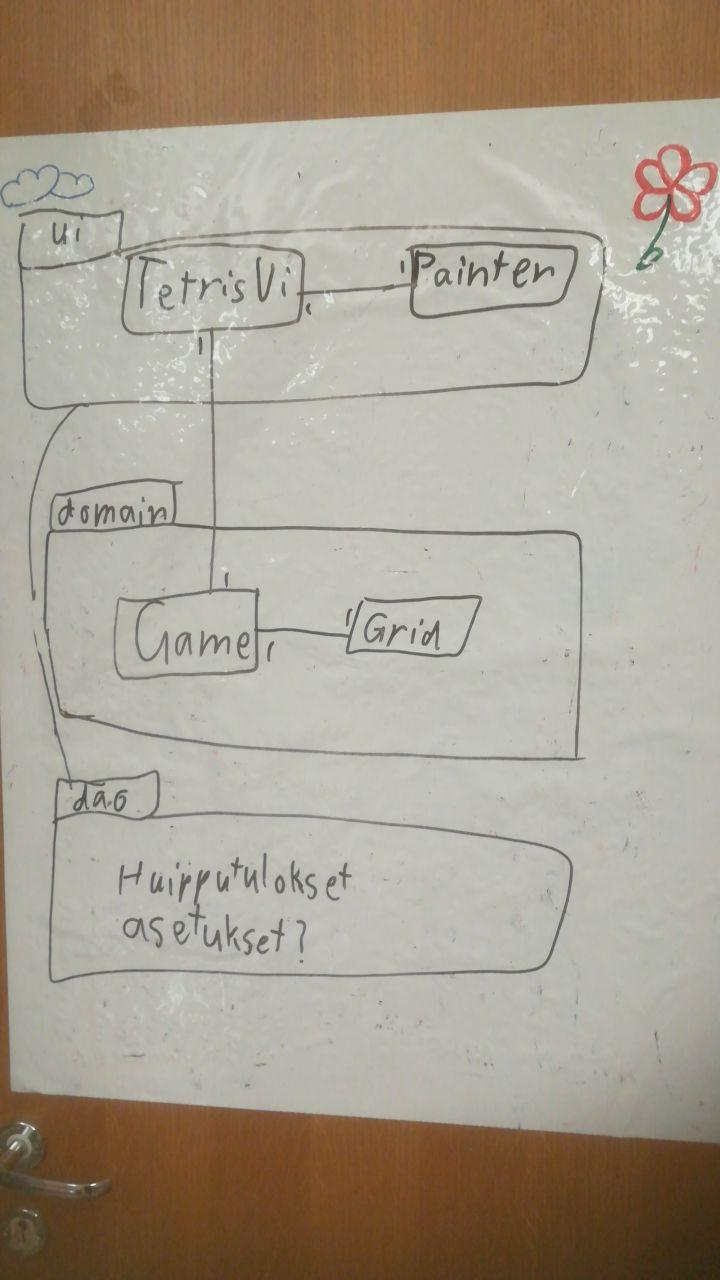 ui
TetrisVi
1
1
Painter
1
domain
1
Game
1
1
Grid
dao
Huipputulokset
asetukset?